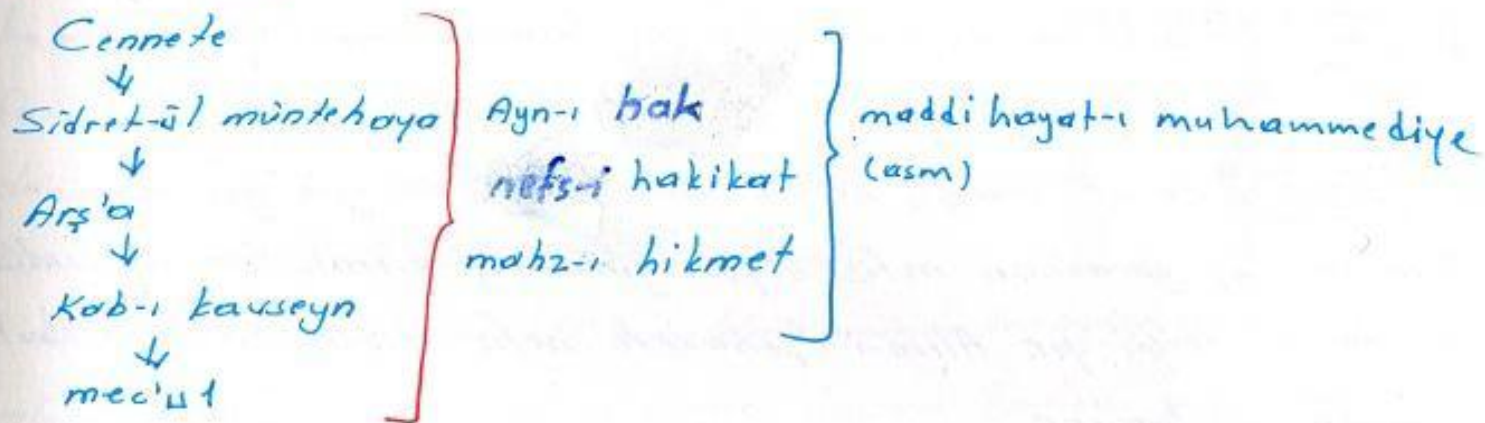 Cennete
↓
Sidret-ül müntehaya
↓
Arş'a
↓
Kab-ı kavseyn
↓
mec'ul
Ayn-ı hak
nefs-i hakikat
mahz-ı hikmet
maddi hayat-ı muhammediye
(asm)